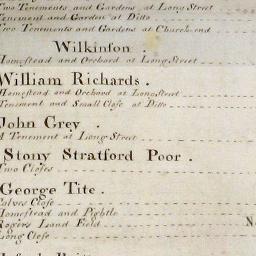 Two Tenements and Gardens at Long Street
Tenement and Garden at Ditto
Two Tenements and Gardens at Church-end
Wilkinson.
Homestead and Orchard at Long Street
William Richards.
Homestead and Orchard at Longstreet
Tenement and Small Close at Ditto
John Grey.
A Tenement at Long Street
Stony Stratford Poor.
Two Closes
George Tite.
Calves Close
Homestead and Pightle
Rogers Land Field
Long Close